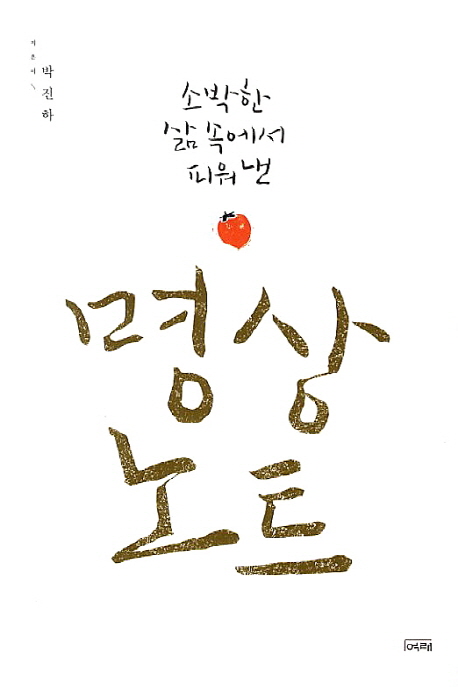 지은이 \ 박진하
소박한
삶 속에서
피워 낸
명상
노트
역래